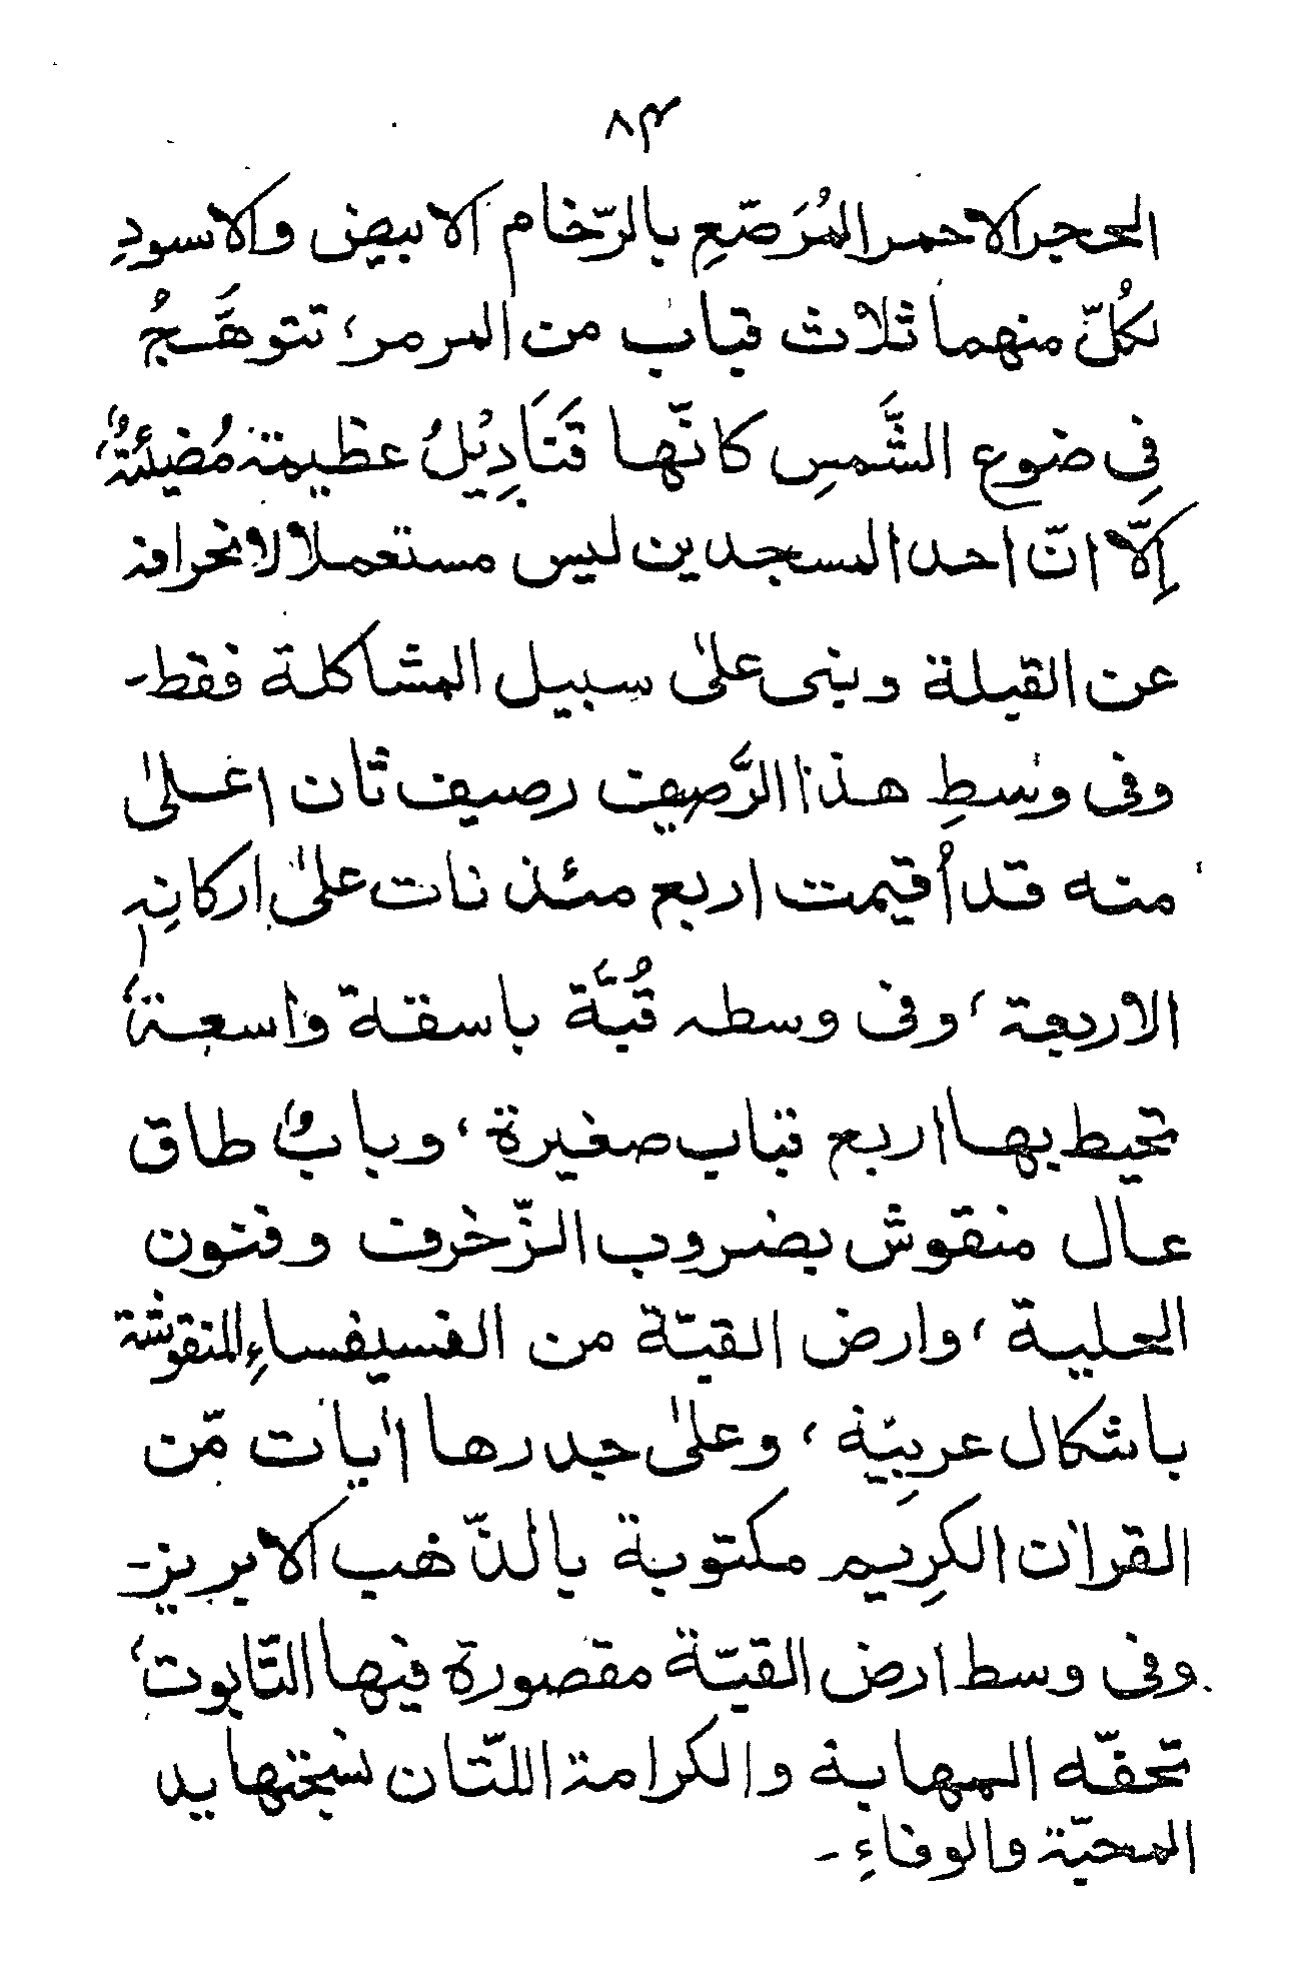 ٨٣
الحجر الاحمر المُرَصّعِ بالرّخام الابيض والاسودِ
لكُلّ منهما ثلاث قباب من المرمر، تتوهَّجُ
فِى ضوء الشَّمسِ كانّها قَنَادِيْلُ عظيمة مُضيئةٌ،
اِلّا انّ احد المسجدين ليس مستعملا لانحرافه
عن القبلة وبنى علىٰ سبيل المشاكلة فقط-
وفى وسطِ هذا الرَّصيف رصيف ثان اعلىٰ
منه قد اُقيمت اربع مئذنات علىٰ اركانِه
الاربعة، وفى وسطه قُبَّة باسقة واسعة،
تحيط بها اربع قباب صغيرة، وبابٌ طاق
عال منقوش بضروب الزّخرف وفنون
الحلية، وارض القبّة من الفسيفساءِ المنقوشة
باشكال عربِيّة، وعلىٰ جدرها اٰيات مّن
القراٰن الكرِيم مكتوبة بالذّهب الابريز-
وفى وسط ارض القبّة مقصورة فيها التّابوت،
تحفّه المهابة والكرامة اللتّان نسجتها يد
المحبّة والوفاءِ-